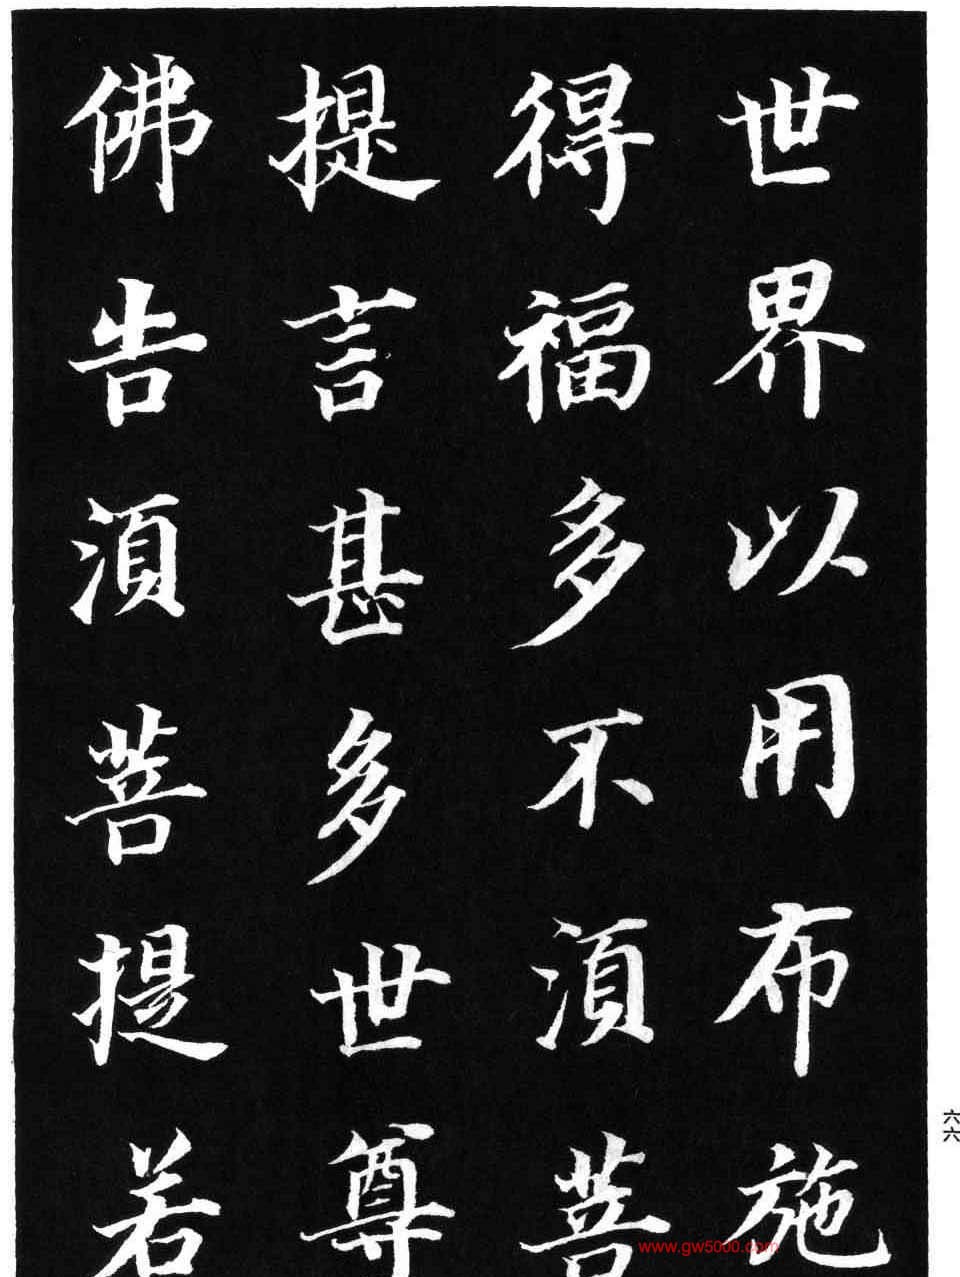 世界以用布施
得福多不湏菩
提言甚多世尊
佛告湏菩提若
六六
www.gw5000.com